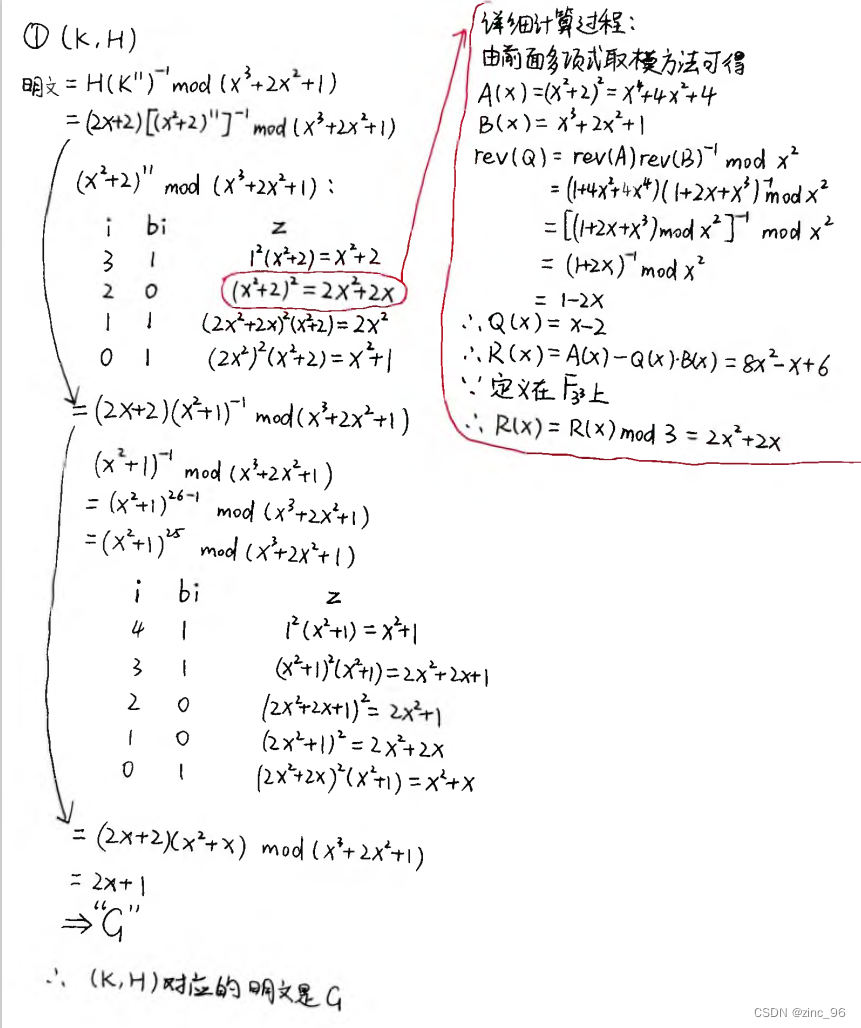 ① (K,H)
明文 = H(K¹¹)⁻¹ mod (x³+2x²+1)
= (2x+2)[(x²+2)¹¹]⁻¹ mod (x³+2x²+1)
(x²+2)¹¹ mod (x³+2x²+1):
i bi z
3 1 1²(x²+2)=x²+2
2 0 (x²+2)²=2x²+2x
1 1 (2x²+2x)²(x²+2)=2x²
0 1 (2x²)²(x²+2)=x²+1
= (2x+2)(x²+1)⁻¹ mod (x³+2x²+1)
(x²+1)⁻¹ mod (x³+2x²+1)
= (x²+1)²⁶⁻¹ mod (x³+2x²+1)
= (x²+1)²⁵ mod (x³+2x²+1)
i bi z
4 1 1²(x²+1)=x²+1
3 1 (x²+1)²(x²+1)=2x²+2x+1
2 0 (2x²+2x+1)²=2x²+1
1 0 (2x²+1)²=2x²+2x
0 1 (2x²+2x)²(x²+1)=x²+x
= (2x+2)(x²+x) mod (x³+2x²+1)
= 2x+1
⇒ “G”
∴ (K,H)对应的明文是G
详细计算过程:
由前面多项式取模方法可得
A(x)=(x²+2)²=x⁴+4x²+4
B(x)=x³+2x²+1
rev(Q)=rev(A)rev(B)⁻¹ mod x²
=(1+4x²+4x⁴)(1+2x+x³)⁻¹ mod x²
=[(1+2x+x³)mod x²]⁻¹ mod x²
=(1+2x)⁻¹ mod x²
=1-2x
∴Q(x)=x-2
∴R(x)=A(x)-Q(x)·B(x)=8x²-x+6
∵定义在F₃³上
∴R(x)=R(x) mod 3=2x²+2x
CSDN @zinc_96